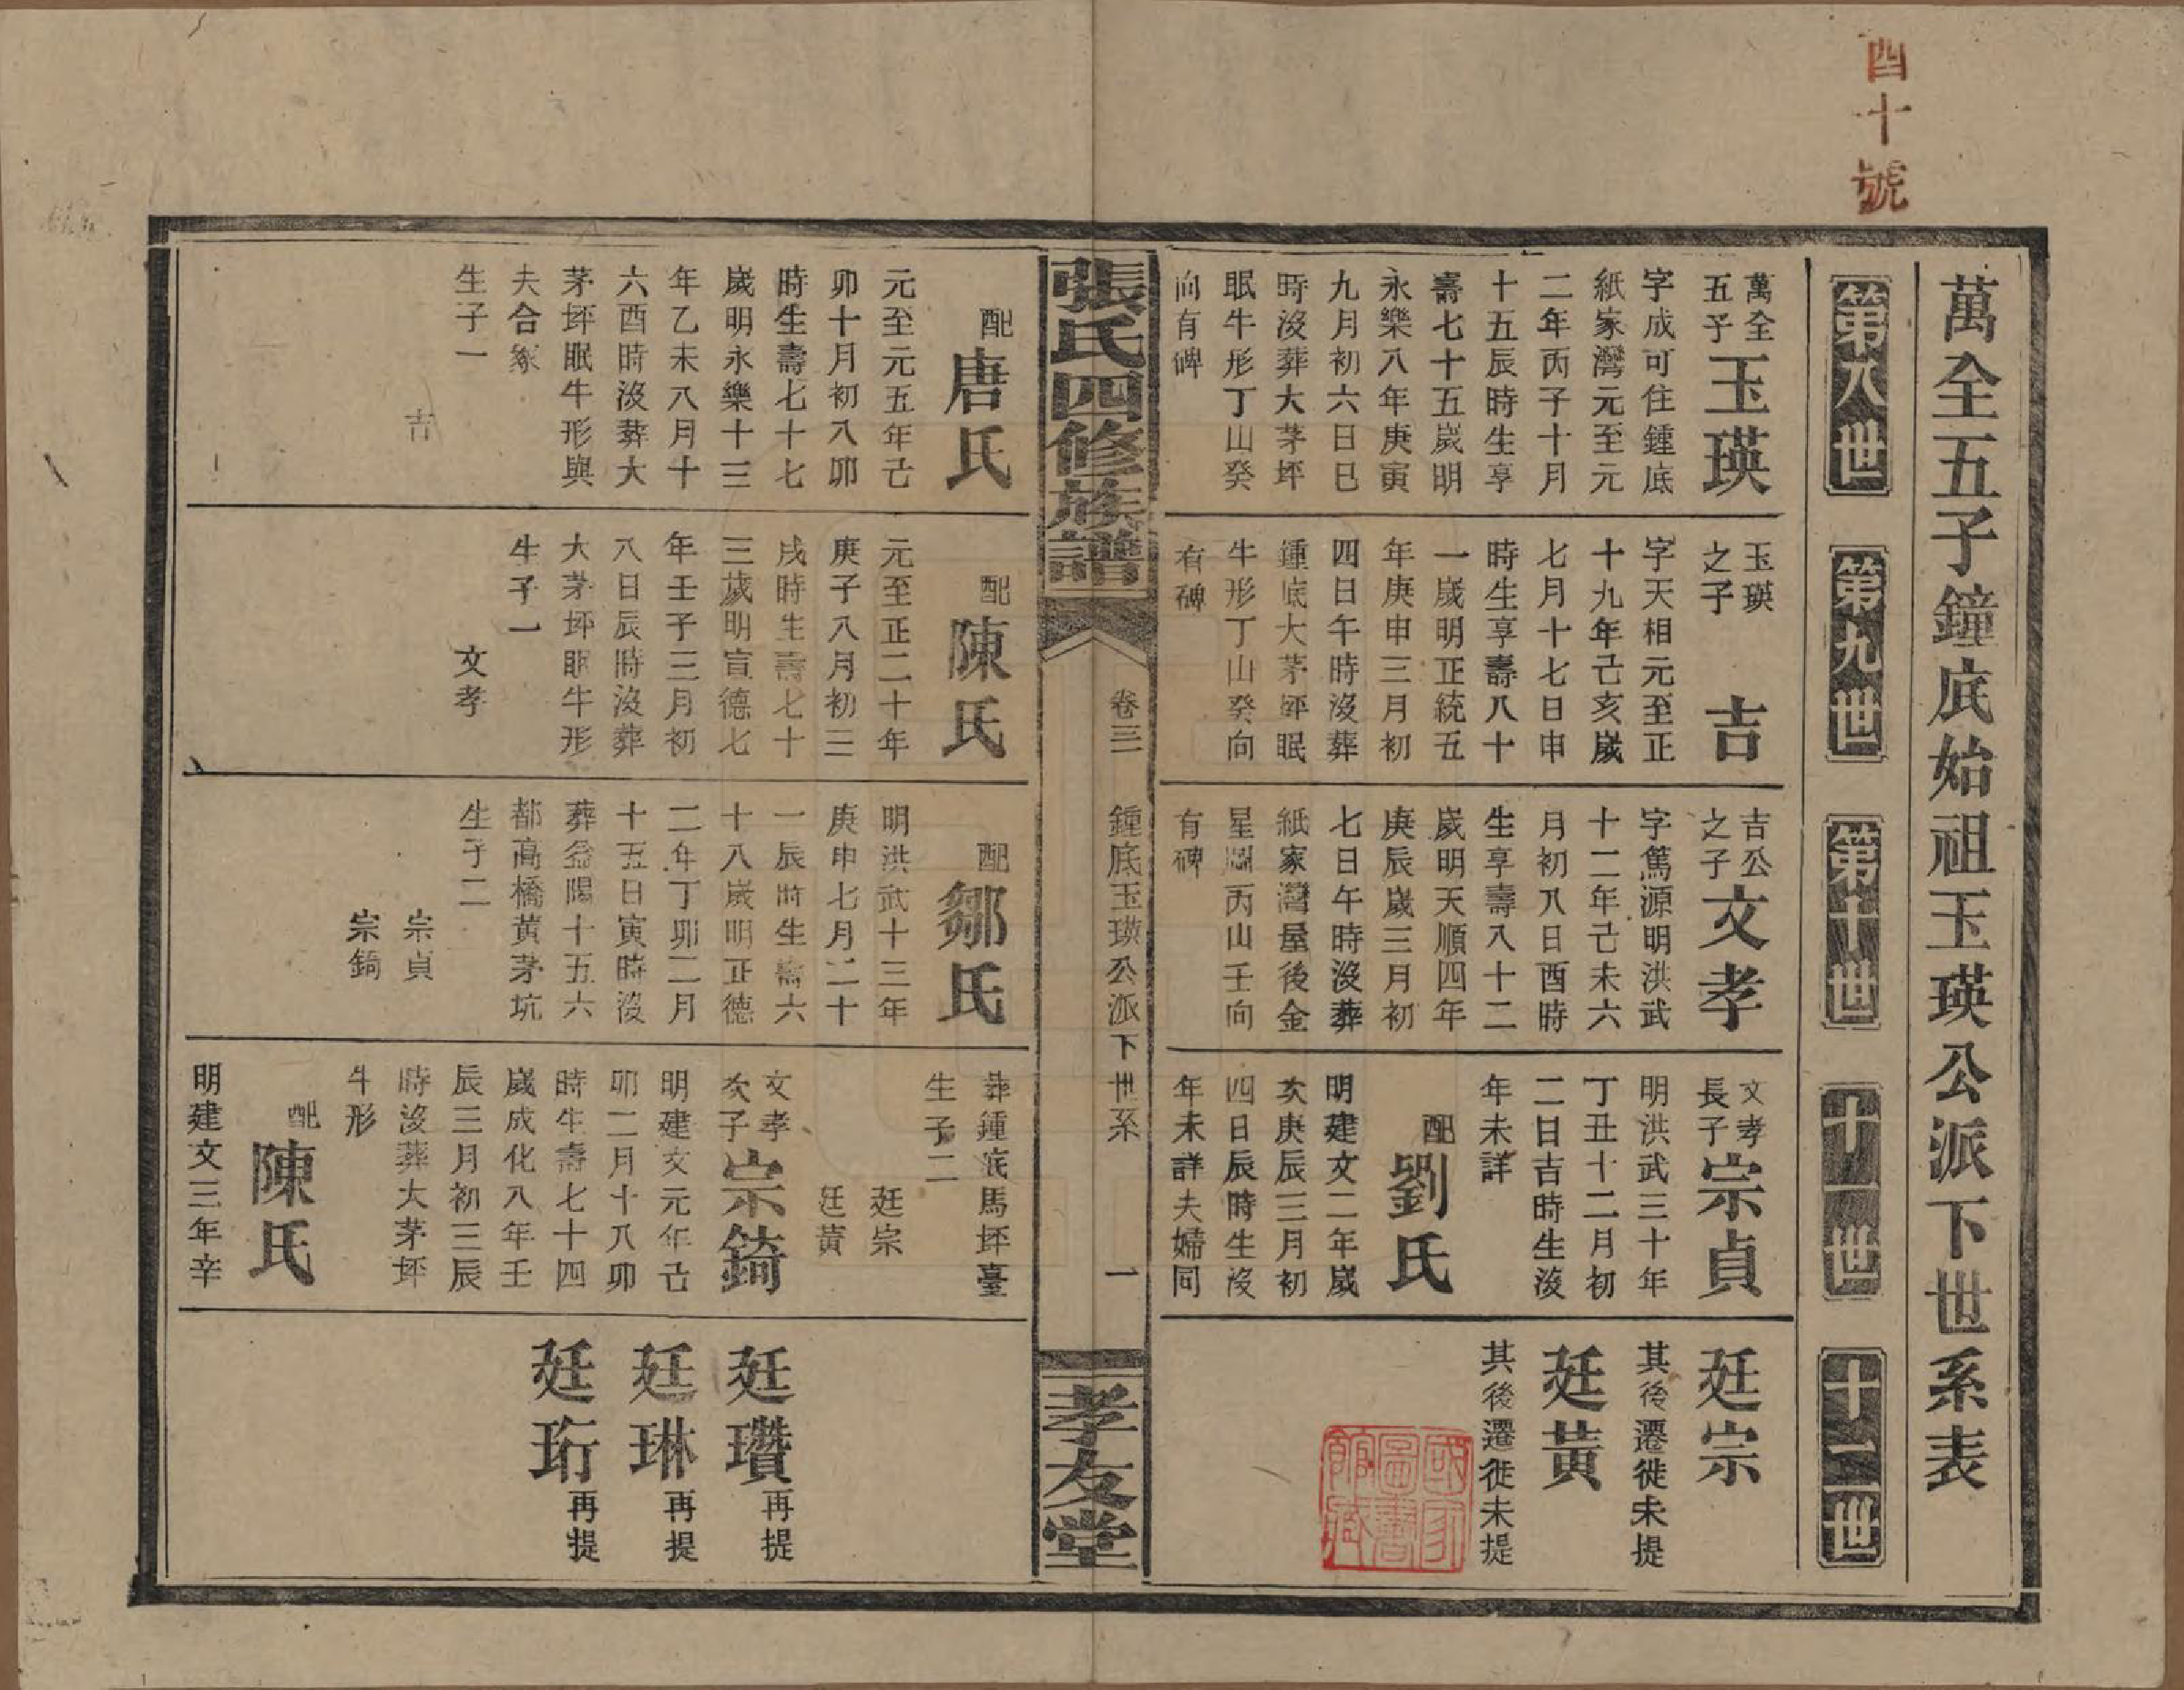 四十號
萬全五子鐘底始祖玉瑛公派下世系表
第八世
第九世
第十世
十一世
十二世
萬全
五子
玉瑛
字成可住鍾底
紙家灣元至元
二年丙子十月
十五辰時生享
壽七十五歲明
永樂八年庚寅
九月初六日巳
時沒葬大茅坪
眠牛形丁山癸
向有碑
玉瑛
之子
吉
字天相元至正
十九年己亥歲
七月十七日申
時生享壽八十
一歲明正統五
年庚申三月初
四日午時沒葬
鍾底大茅坪眠
牛形丁山癸向
有碑
吉公
之子
文孝
字篤源明洪武
十二年己未六
月初八日酉時
生享壽八十二
歲明天順四年
庚辰歲三月初
七日午時沒葬
紙家灣屋後金
星 丙山壬向
有碑
文孝
長子
宗貞
明洪武三十年
丁丑十二月初
二日吉時生沒
年未詳
配
劉氏
明建文二年歲
次庚辰三月初
四日辰時生沒
年未詳夫婦同
廷宗
其後遷徙未提
廷黃
其後遷徙未提
國家
圖書
館藏
張氏四修族譜
卷三
鍾底玉瑛公派下世系
一
孝友堂
配
唐氏
元至元五年己
卯十月初八卯
時生壽七十七
歲明永樂十三
年乙未八月十
六酉時沒葬大
茅坪眠牛形與
夫合冢
生子一
吉
配
陳氏
元至正二十年
庚子八月初三
戌時生壽七十
三歲明宣德七
年壬子三月初
八日辰時沒葬
大茅坪眠牛形
生子一
文孝
配
鄒氏
明洪武十三年
庚申七月二十
一辰時生壽六
十八歲明正德
二年丁卯二月
十五日寅時沒
葬益陽十五六
都高橋黃茅坑
生子二
宗貞
宗錡
葬鍾底馬坪臺
生子二
廷宗
廷黃
文孝
次子
宗錡
明建文元年己
卯二月十八卯
時生壽七十四
歲成化八年壬
辰三月初三辰
時沒葬大茅坪
牛形
配
陳氏
明建文三年辛
廷瓚 再提
廷琳 再提
廷珩 再提